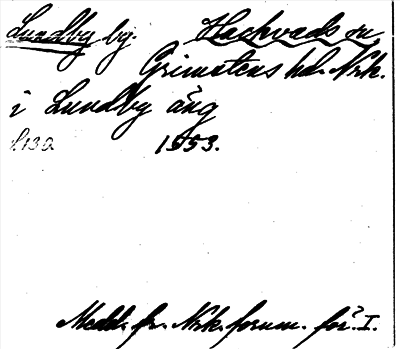 Lundby by. Hackvads sn
Grimstens hd. Nrk.
i Lundby äng
f. 130 1553.
Medd. fr. Nrk. fornm. för. I.